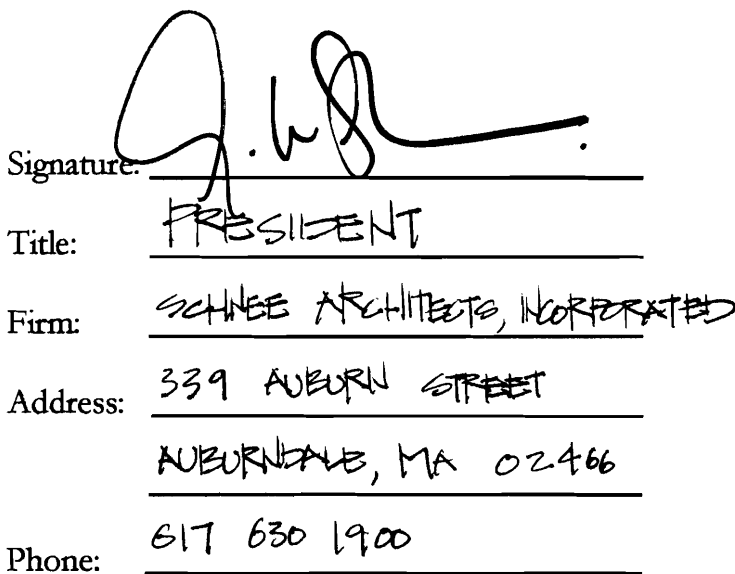 Signature:
Title: PRESIDENT
Firm: SCHNEE ARCHITECTS, INCORPORATED
Address: 339 AUBURN STREET
AUBURNDALE, MA 02466
Phone: 617 630 1900